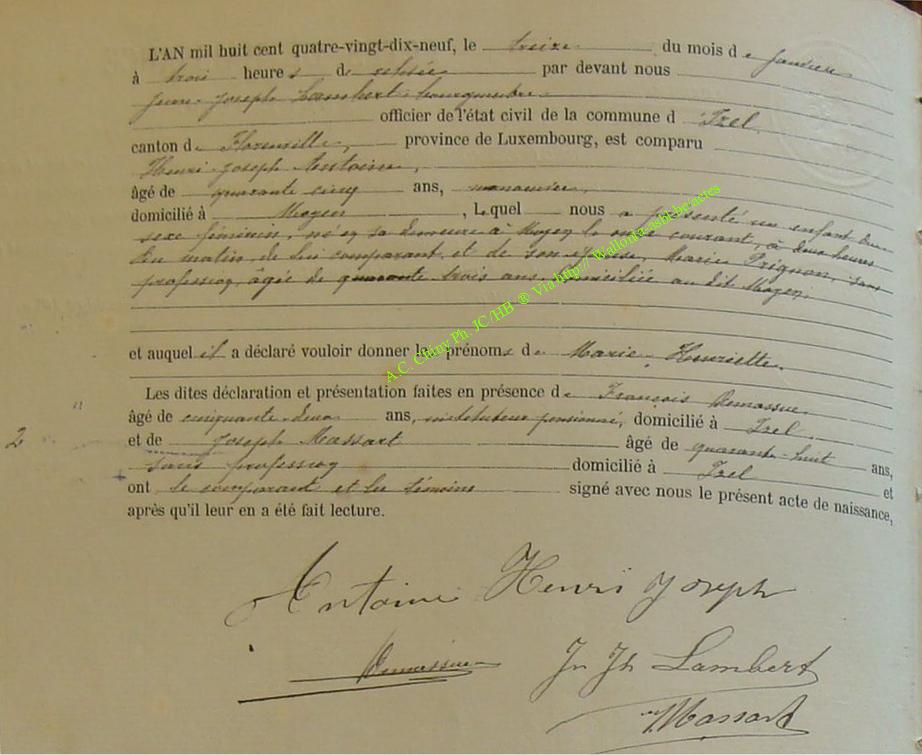 L'AN mil huit cent quatre-vingt-dix-neuf, le treize du mois de janvier
à trois heures de relevée par devant nous
Jean-Joseph Lambert bourgmestre
officier de l'état civil de la commune d Izel
canton de Florenville, province de Luxembourg, est comparu
Henri Joseph Antoine,
âgé de quarante cinq ans, manouvrier,
domicilié à Moyen, Lequel nous a présenté un enfant du
sexe féminin, né en sa demeure à Moyen le onze courant, à deux heures
du matin de lui comparant et de son épouse, Marie Prignon, sans
profession, âgée de quarante trois ans, domiciliée au dit Moyen.
et auquel il a déclaré vouloir donner les prénoms de Marie Henriette
Les dites déclaration et présentation faites en présence de François Demasure
âgé de cinquante-deux ans, instituteur pensionné, domicilié à Izel
et de Joseph Massart âgé de quarante-huit ans,
2
sans profession domicilié à Izel et
ont le comparant et les témoins signé avec nous le présent acte de naissance,
après qu'il leur en a été fait lecture.
Antoine Henri Joseph
Jn Jh Lambert
Massart
A.C. Chiny Ph. JC/HB ® Via http://Wallonia.asbl.be/actes